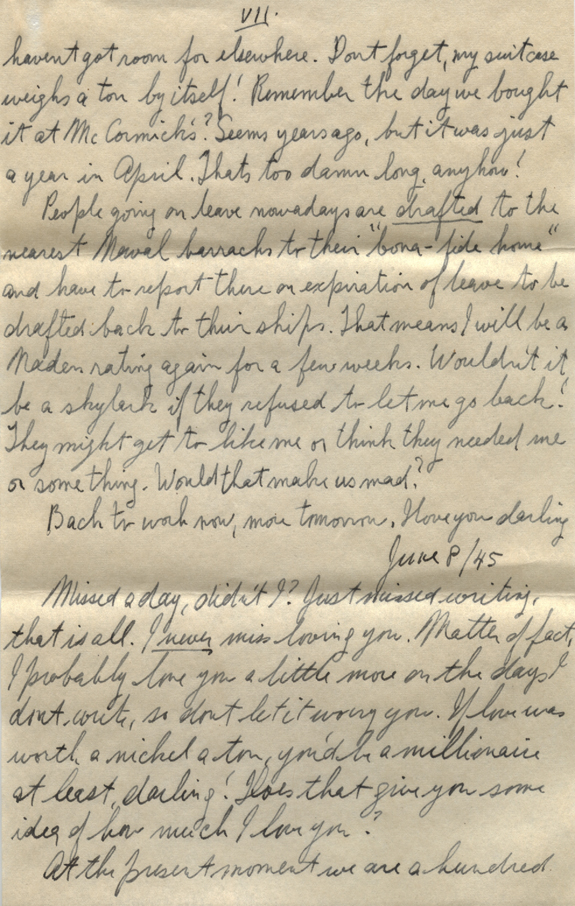 VII.
havent got room for elsewhere. Dont forget, my suitcase
weighs a ton by itself! Remember the day we bought
it at McCormick's? Seems years ago, but it was just
a year in April. Thats too damn long, anyhow!
People going on leave nowadays are drafted to the
nearest Naval barracks to their "bona-fide home"
and have to report there on expiration of leave to be
drafted back to their ships. That means I will be a
Naden rating again for a few weeks. Wouldn't it
be a skylark if they refused to let me go back!
They might get to like me or think they needed me
or something. Would that make us mad?
Back to work now, more tomorrow. I love you darling
June 8/45
Missed a day, didn't I? Just missed writing,
that is all. I never miss loving you. Matter of fact,
I probably love you a little more on the days I
dont write, so dont let it worry you. If love was
worth a nickel a ton, you'd be a millionaire
at least, darling! Does that give you some
idea of how much I love you?
At the present moment we are a hundred